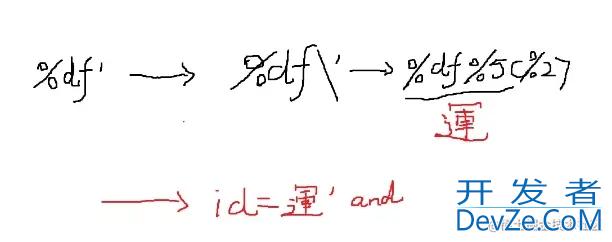 %df' → %df\' → %df%5c%27
運
→ id=運' and
开发者
DevZe.CoM